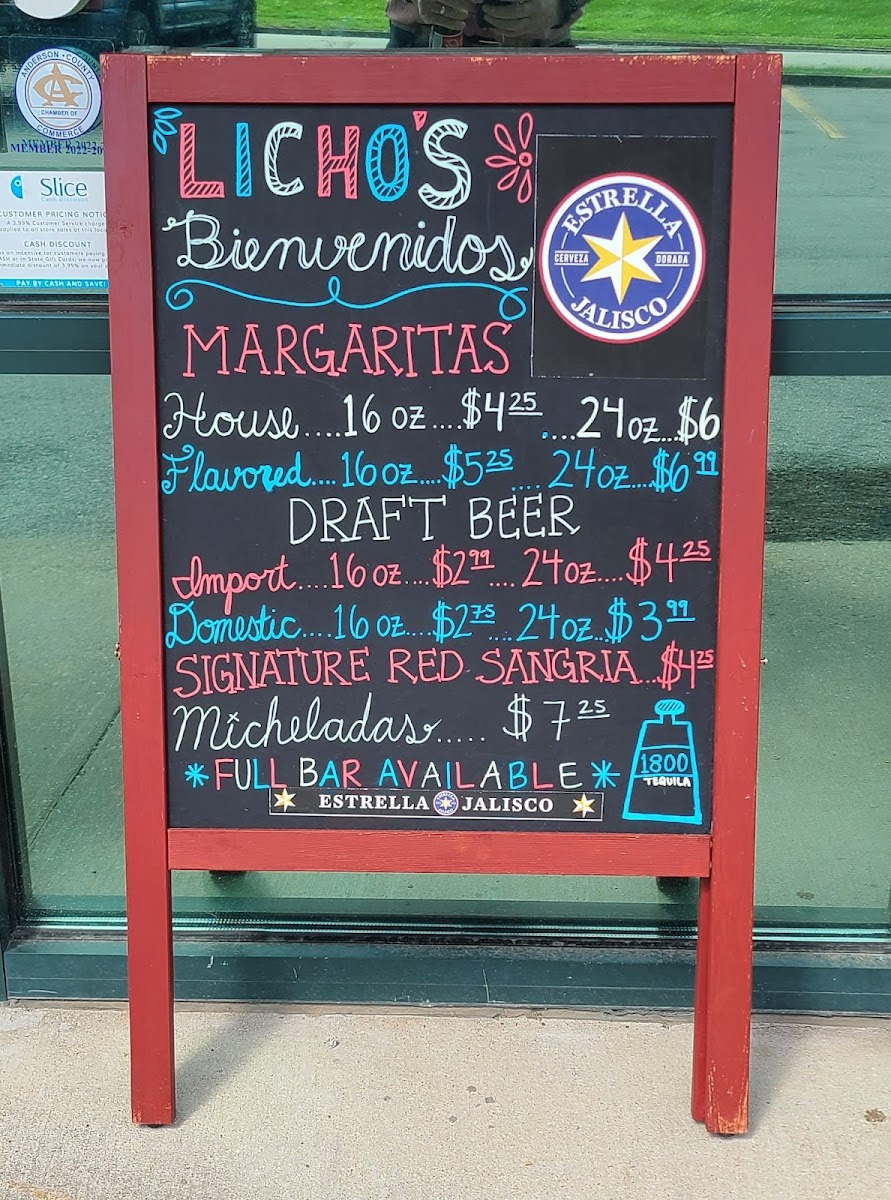 ANDERSON • COUNTY
CHAMBER OF
COMMERCE
MEMBER 2022
MEMBER 2022-20
Slice
Cash Discount
CUSTOMER PRICING NOTIC
A 3.99% Customer Service charge
applied to all store sales at this loc
CASH DISCOUNT
As an incentive for customers paying
ASH or In-Store Gift Cards, we now
immediate discount of 3.99% on your
PAY BY CASH AND SAVE!
LICHO'S
Bienvenidos
ESTRELLA
CERVEZA DORADA
JALISCO
MARGARITAS
House....16 oz....$4 25 ....24 oz...$6
Flavored....16 oz....$5 25 .... 24 oz....$6 99
DRAFT BEER
Import....16 oz....$2 99 .... 24 oz....$4 25
Domestic....16 oz....$2 75 ... 24 oz...$3 99
SIGNATURE RED SANGRIA...$4 25
Micheladas..... $7 25
*FULL BAR AVAILABLE*
1800
TEQUILA
ESTRELLA JALISCO